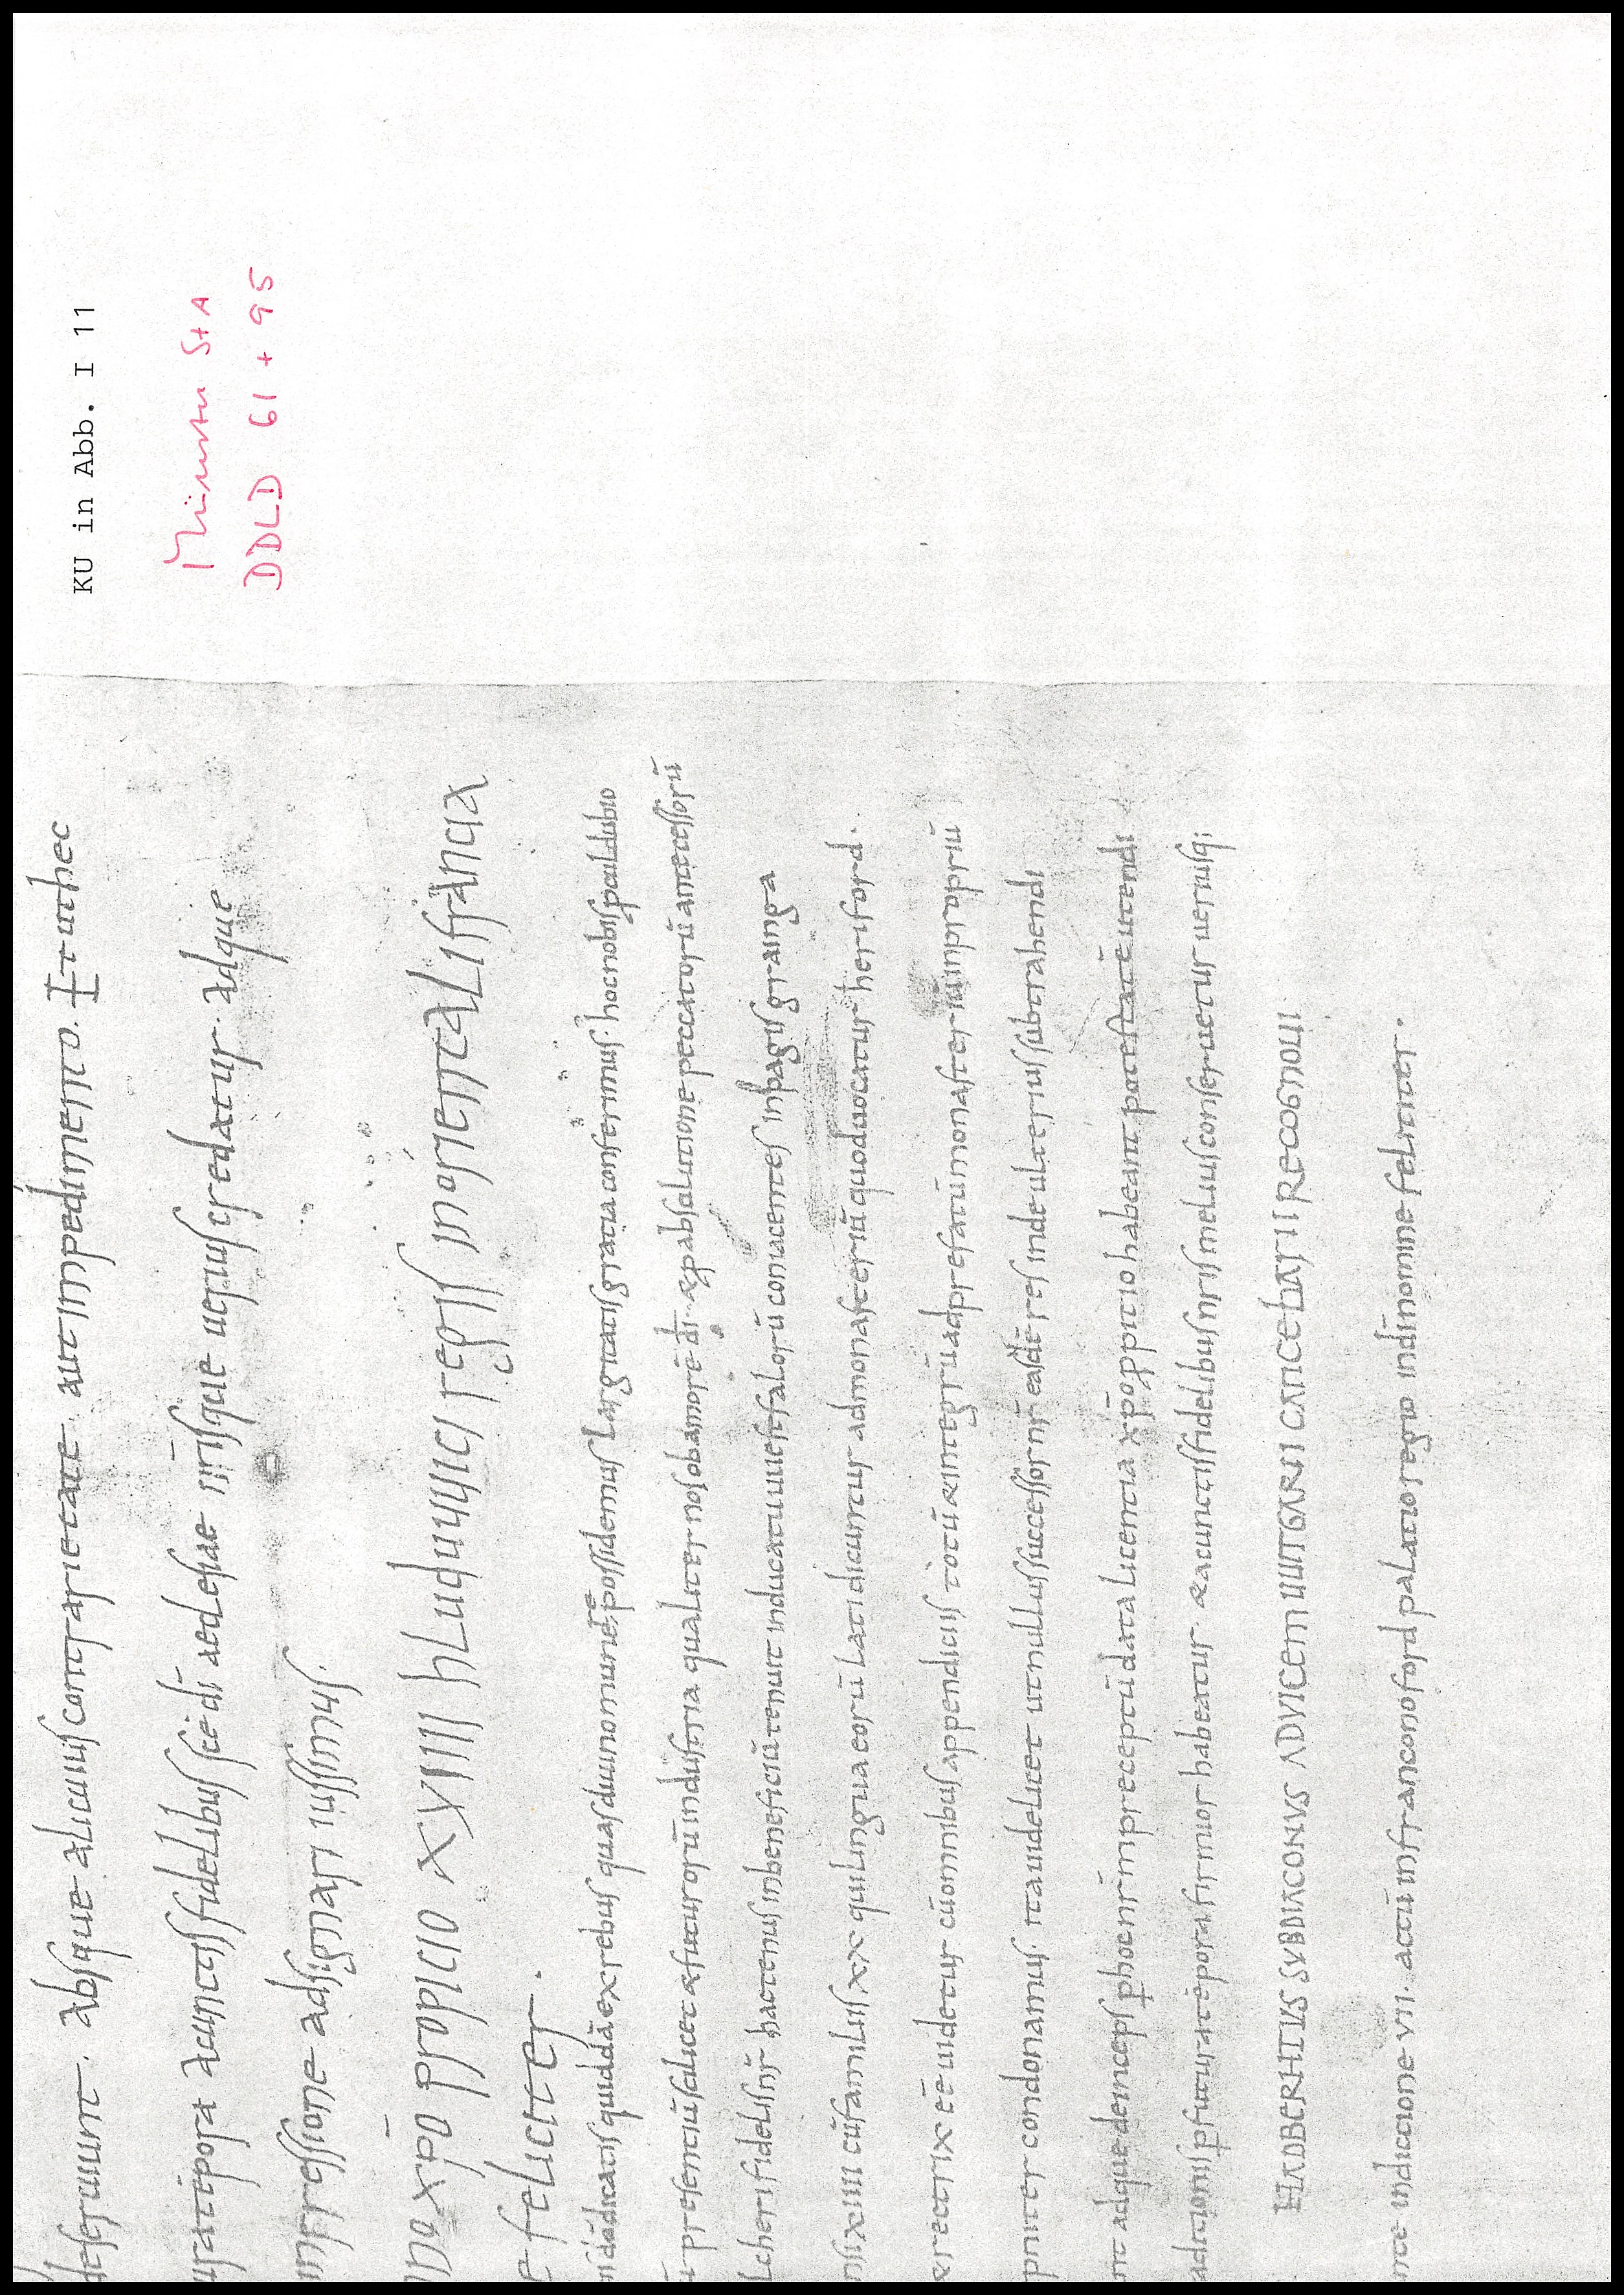 KU in Abb. I 11
Münster StA
DDLD 61 + 95
deseruiunt. absque alicuius contrarietate aut impedimento. Et ut hec
uratēpora acunctis fidelibus scē dī aecclesiae nrīsque uerius credatur. adque
inpressione adsignari iussimus.
xpō propicio xviiii hluduuuici regis inorientali francia
feliciter.
dedicatis quiddā ex rebus quas diuino munere possidemus largitatis gratia conferimus. hoc nobis paul dubio
presentiū scilicet & futurorū industria qualiter nos ob amorē dī. & p absolutione peccatorū antecessorū
cheri fidelis nrī hactenus in beneficiū tenuit in ducatu uuestfalorū coniacentes in pagis grainga
xiiii cū familiis xx qui lingua eorū lati dicuntur ad monasteriū quod uocatur heriford.
rectrix eē uidetur cū omnibus appendiciis totū & integrū ad prefatū monasteriū in propriū
condonamus. ita uidelicet ut nullus successor nrī easdē res inde ulterius subtrahendi
adque deinceps p hoc nrī preceptū data licentia xpō ppitio habeant potestatē utendi
p futura tēpora firmior habeatur. & a cunctis fidelibus nrīs melius conseruetur uerusq;
HADBERHTUS SUBDIACONUS ADVICEM UUITGARII CANCELLARII RECOGNOUI
indictione vii. actū in franconoford palatio regio in dī nomine feliciter.